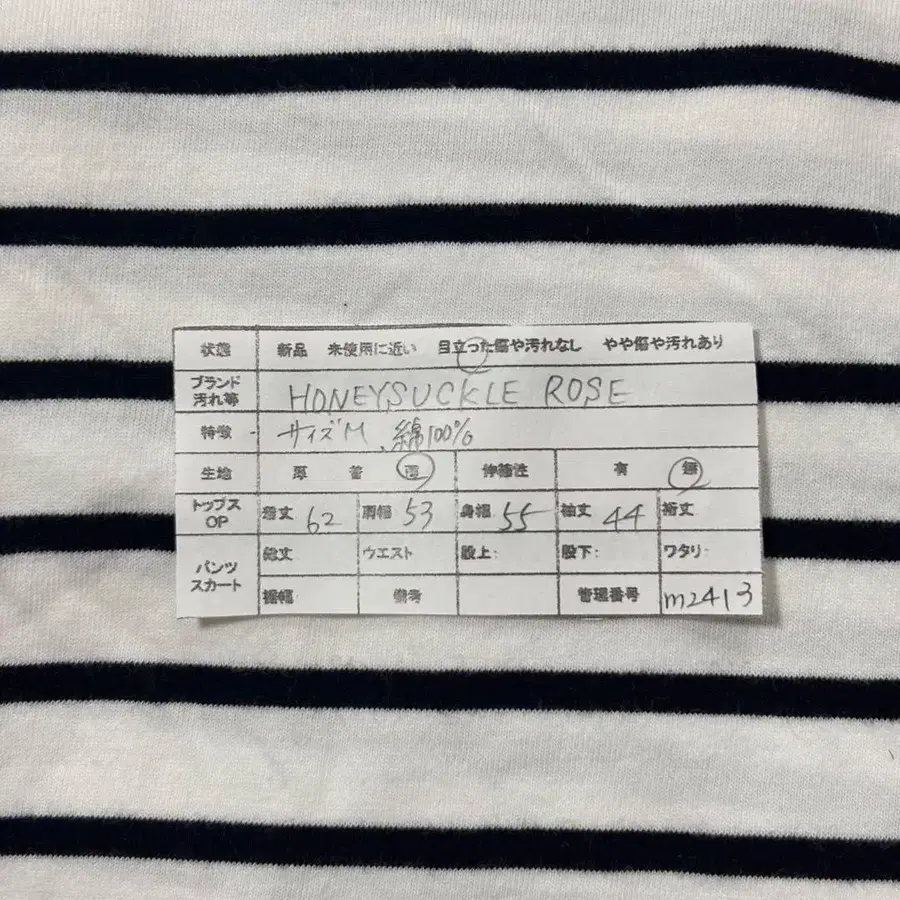 状態 新品 未使用に近い 目立った傷や汚れなし やや傷や汚れあり
ブランド 汚れ等 HONEYSUCKLE ROSE
特徴 サイズM、綿100%
生地 厚 普 薄 伸縮性 有 無
トップス OP 着丈 62 肩幅 53 身幅 55 袖丈 44 裄丈
パンツ スカート 総丈 ウエスト 股上: 股下: ワタリ:
裾幅 備考 管理番号 m2413